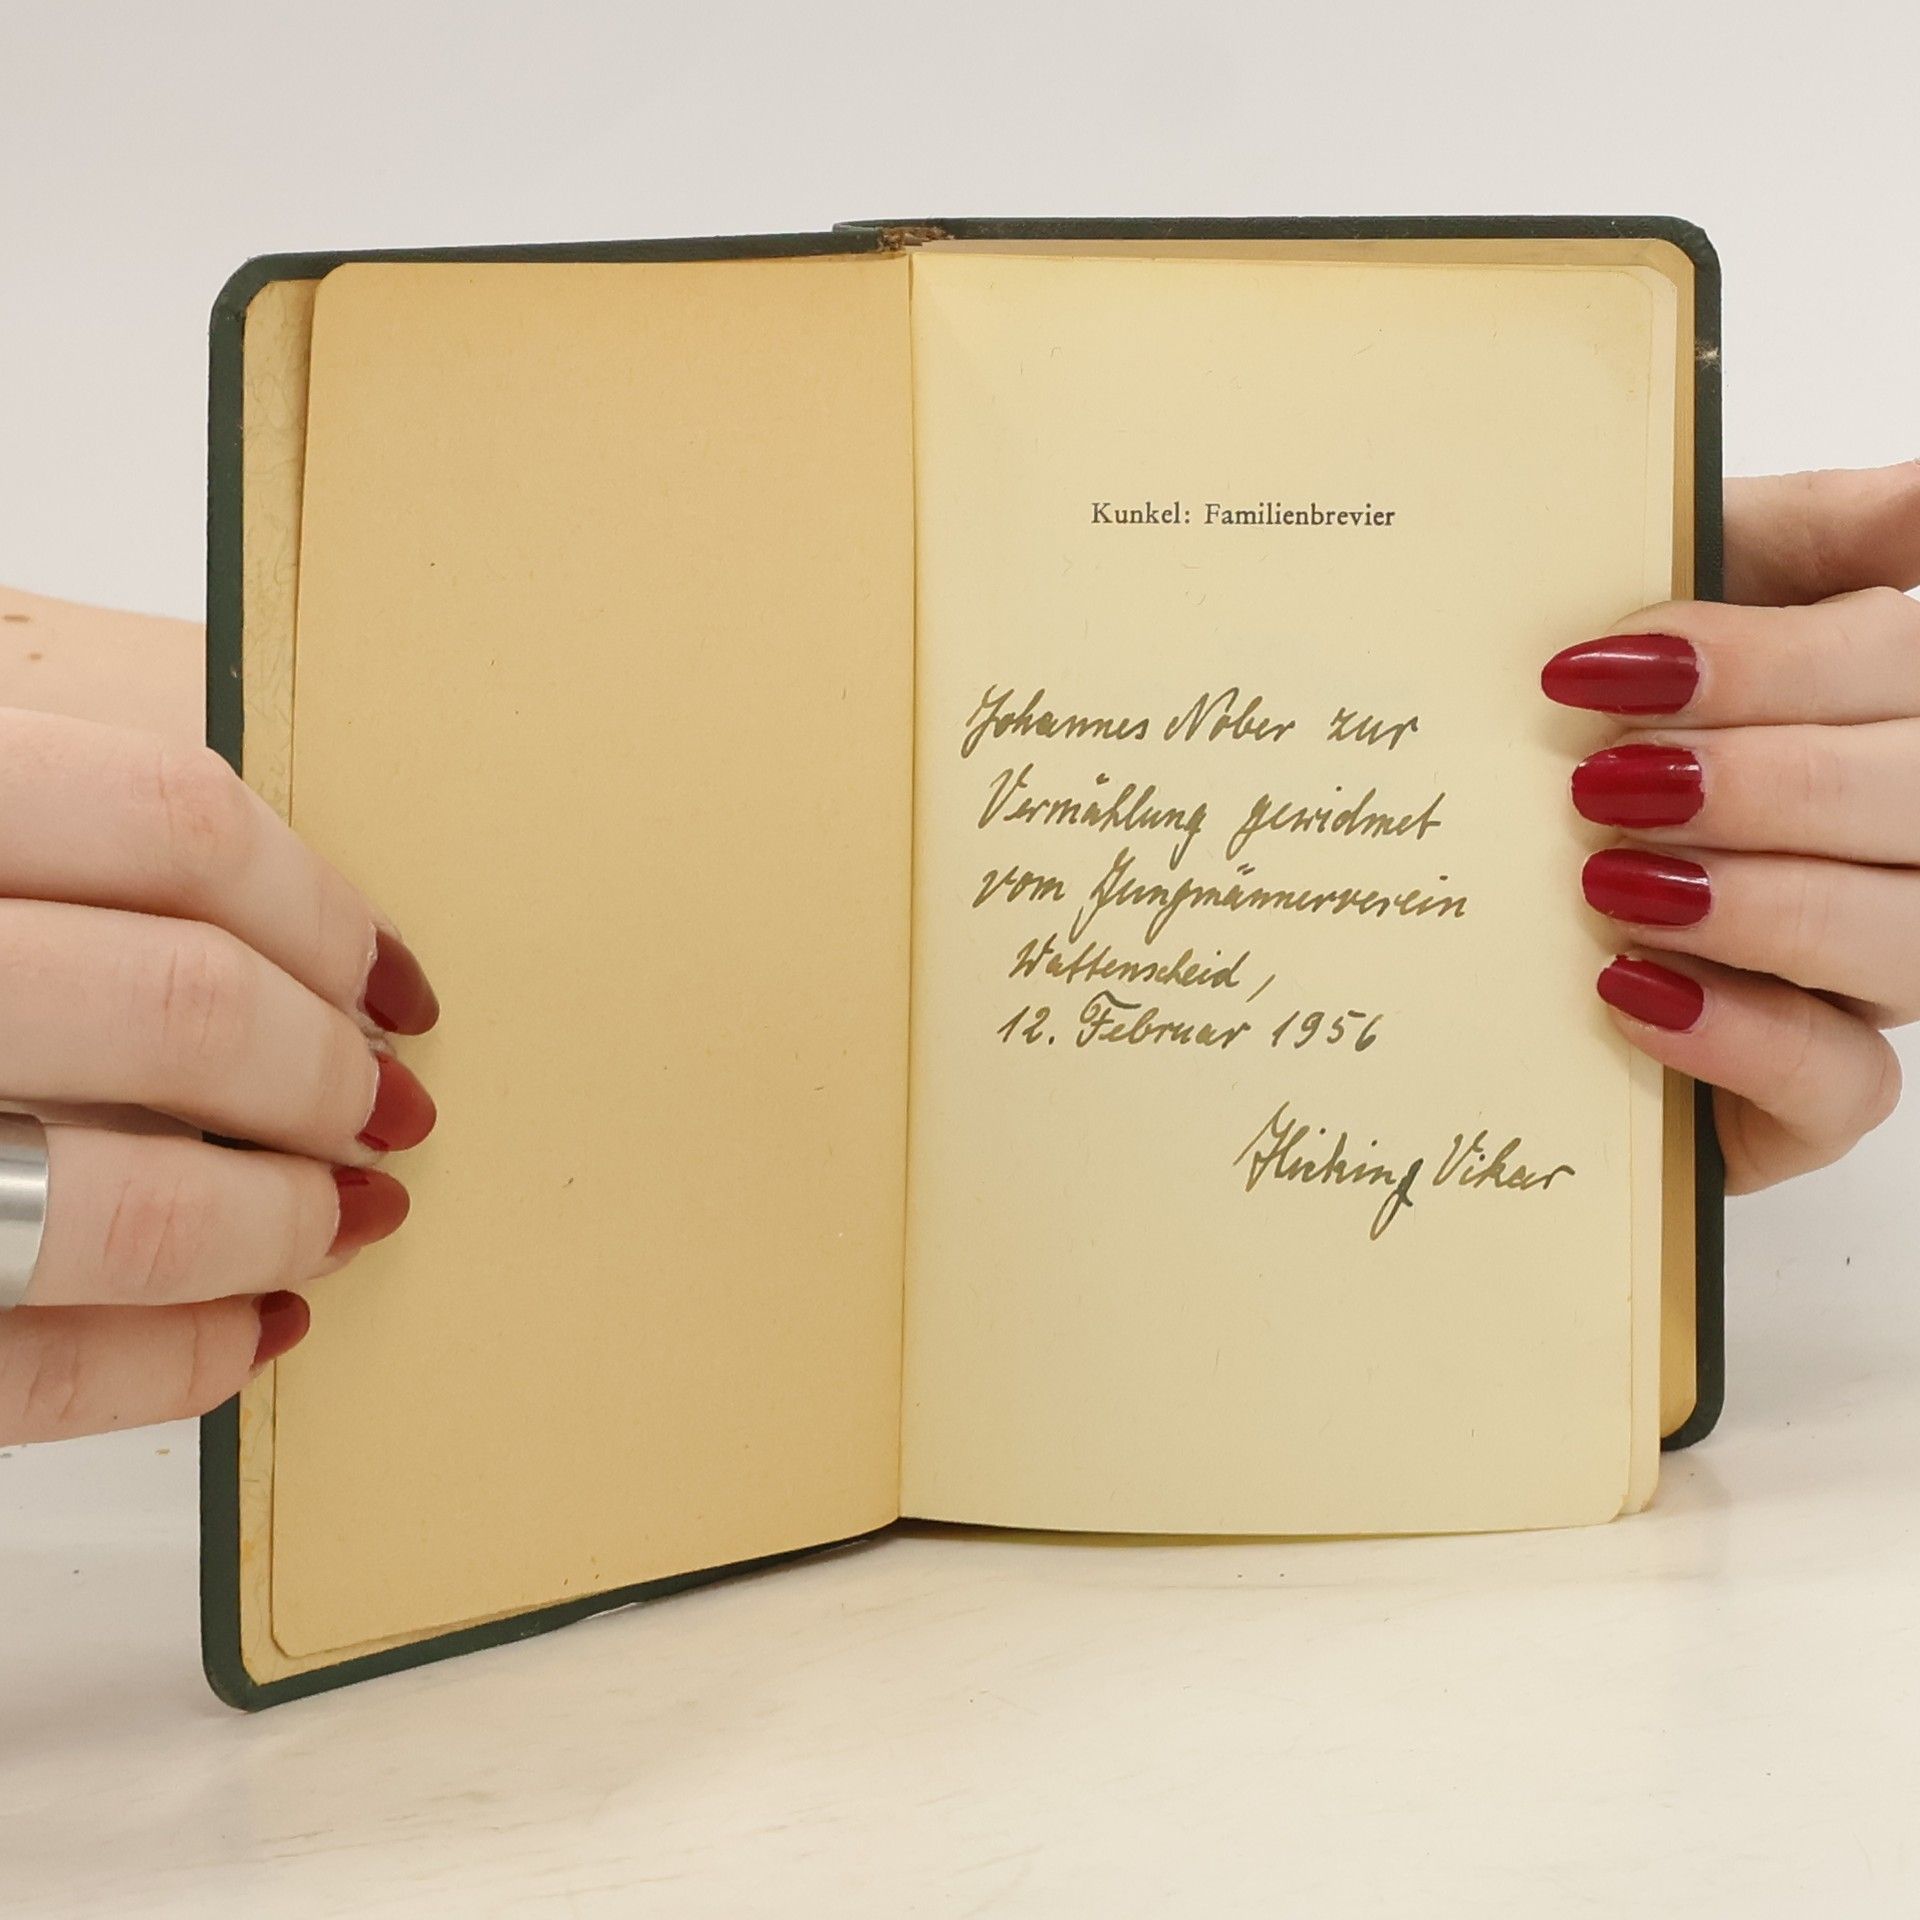 Kunkel: Familienbrevier
Johannes Nober zur
Vermählung gewidmet
vom Jungmännerverein
Wattenscheid,
12. Februar 1956
Vikar